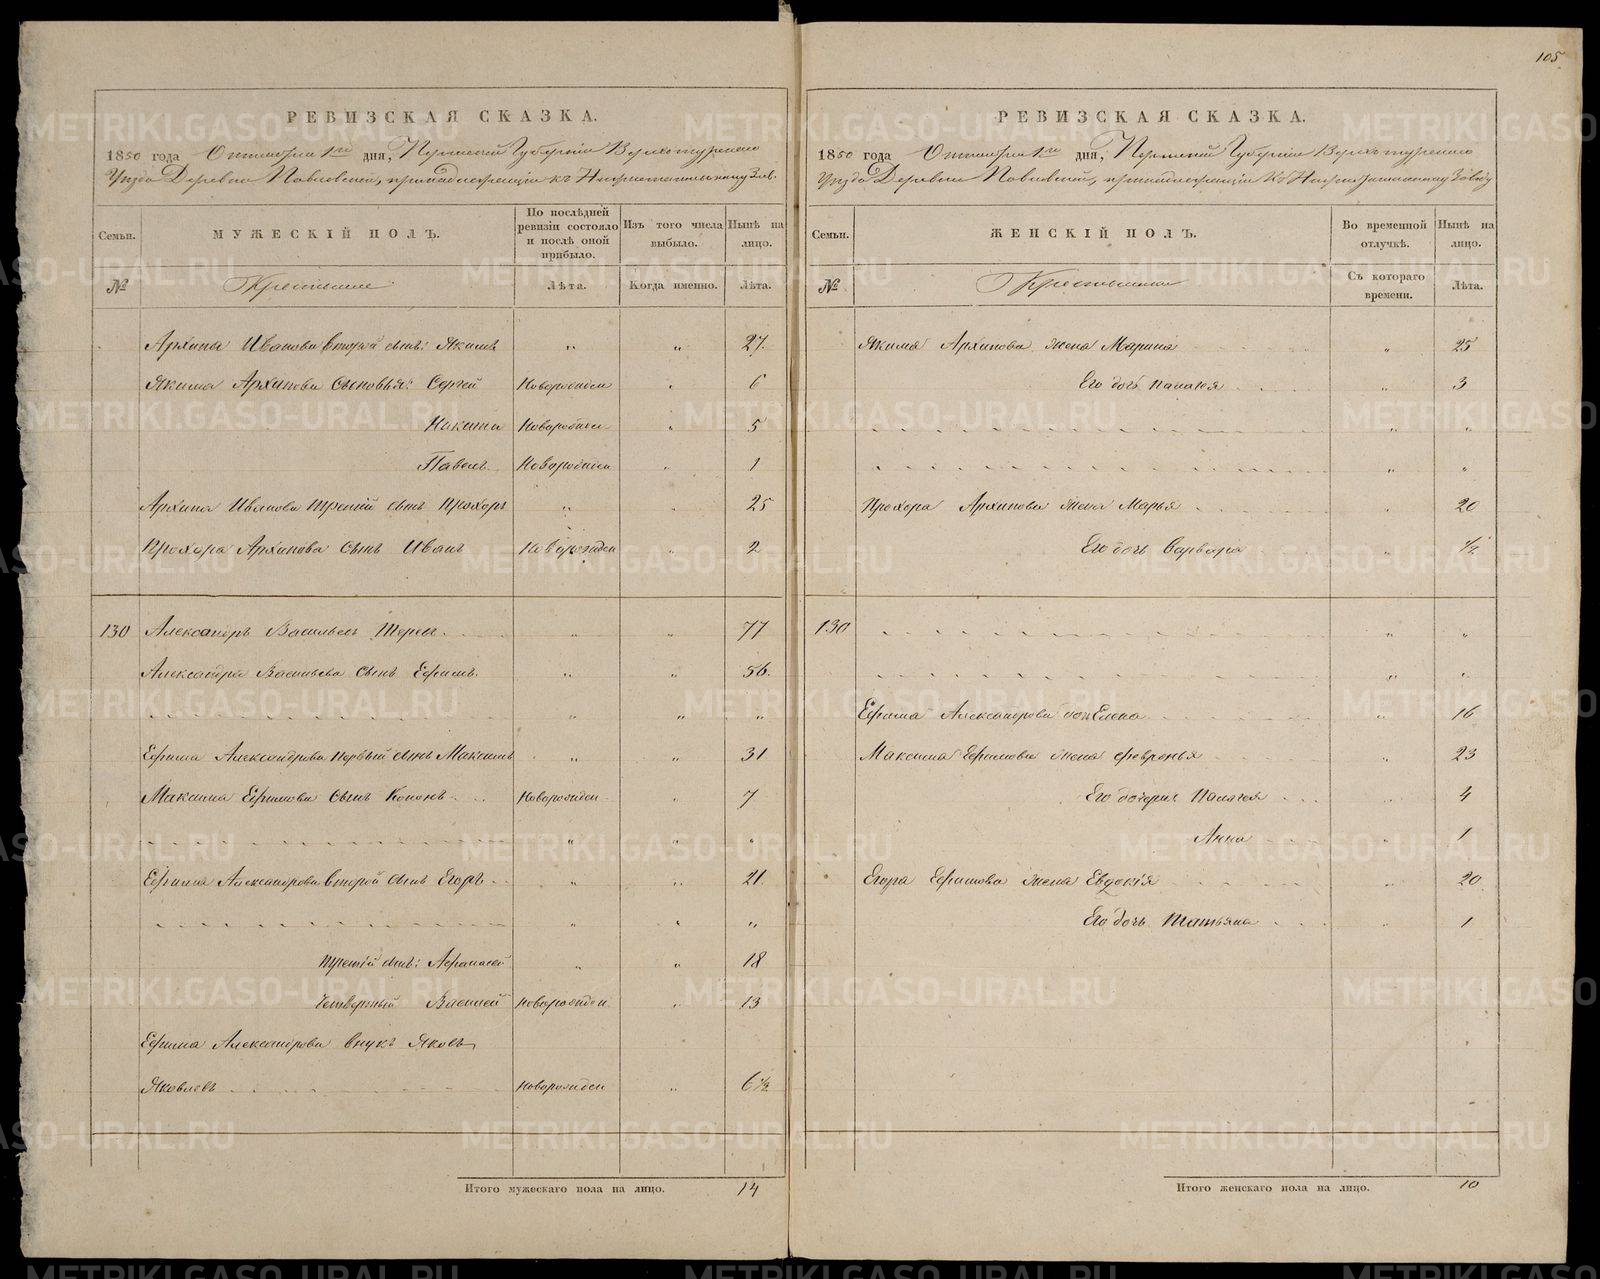 105
РЕВИЗСКАЯ СКАЗКА.
1850 года Октября 1го дня, Пермской Губернии Верхотурского
Уезда Деревни Павловской, принадлежащей къ Нейвошайтанскому Зав.
Семьи.
МУЖЕСКІЙ ПОЛЪ.
По послѣдней ревизіи состояло и послѣ оной прибыло.
Изъ того числа выбыло.
Нынѣ на лицо.
№ Крестьяне Лѣта. Когда именно. Лѣта.
Архипа Иванова второй сынъ: Якимъ " " 27
Якима Архипова сыновья: Сергей Новорожден " 6
Никита Новорожден " 5
Павелъ Новорожден " 1
Архипа Иванова третій сынъ Прохоръ " " 25
Прохора Архипова сынъ Иванъ Новорожден " 2
130 Александръ Васильевъ " " 77
Александра Васильева сынъ Ефимъ " " 56
" " "
Ефима Александрова первый сынъ Максимъ " " 31
Максима Ефимова сынъ Кононъ Новорожден " 7
" " "
Ефима Александрова второй сынъ Егоръ " " 21
" " "
третій сынъ: Афанасей " " 18
Четвертый Василей Новорожден " 13
Ефима Александрова внукъ Яковъ
Яковлевъ Новорожден " 6 1/2
Итого мужескаго пола на лицо. 14
РЕВИЗСКАЯ СКАЗКА.
1850 года Октября 1го дня, Пермской Губернии Верхотурского
Уезда Деревни Павловской, принадлежащей къ Заводу
Семьи.
ЖЕНСКІЙ ПОЛЪ.
Во временной отлучкѣ.
Нынѣ на лицо.
№ Крестьянки Съ котораго времени. Лѣта.
Якима Архипова жена Марина " 25
Его дочь Палагея " 3
" "
" "
Прохора Архипова жена Марья " 20
Его дочь Варвара " 1/2
130 " "
" "
Ефима Александрова дочь Елена " 16
Максима Ефимова жена Февронья " 23
Его дочери Палагея " 4
Анна " 1
Егора Ефимова жена Евдокія " 20
Его дочь Татьяна " 1
Итого женскаго пола на лицо. 10
METRIKI.GASO-URAL.RU